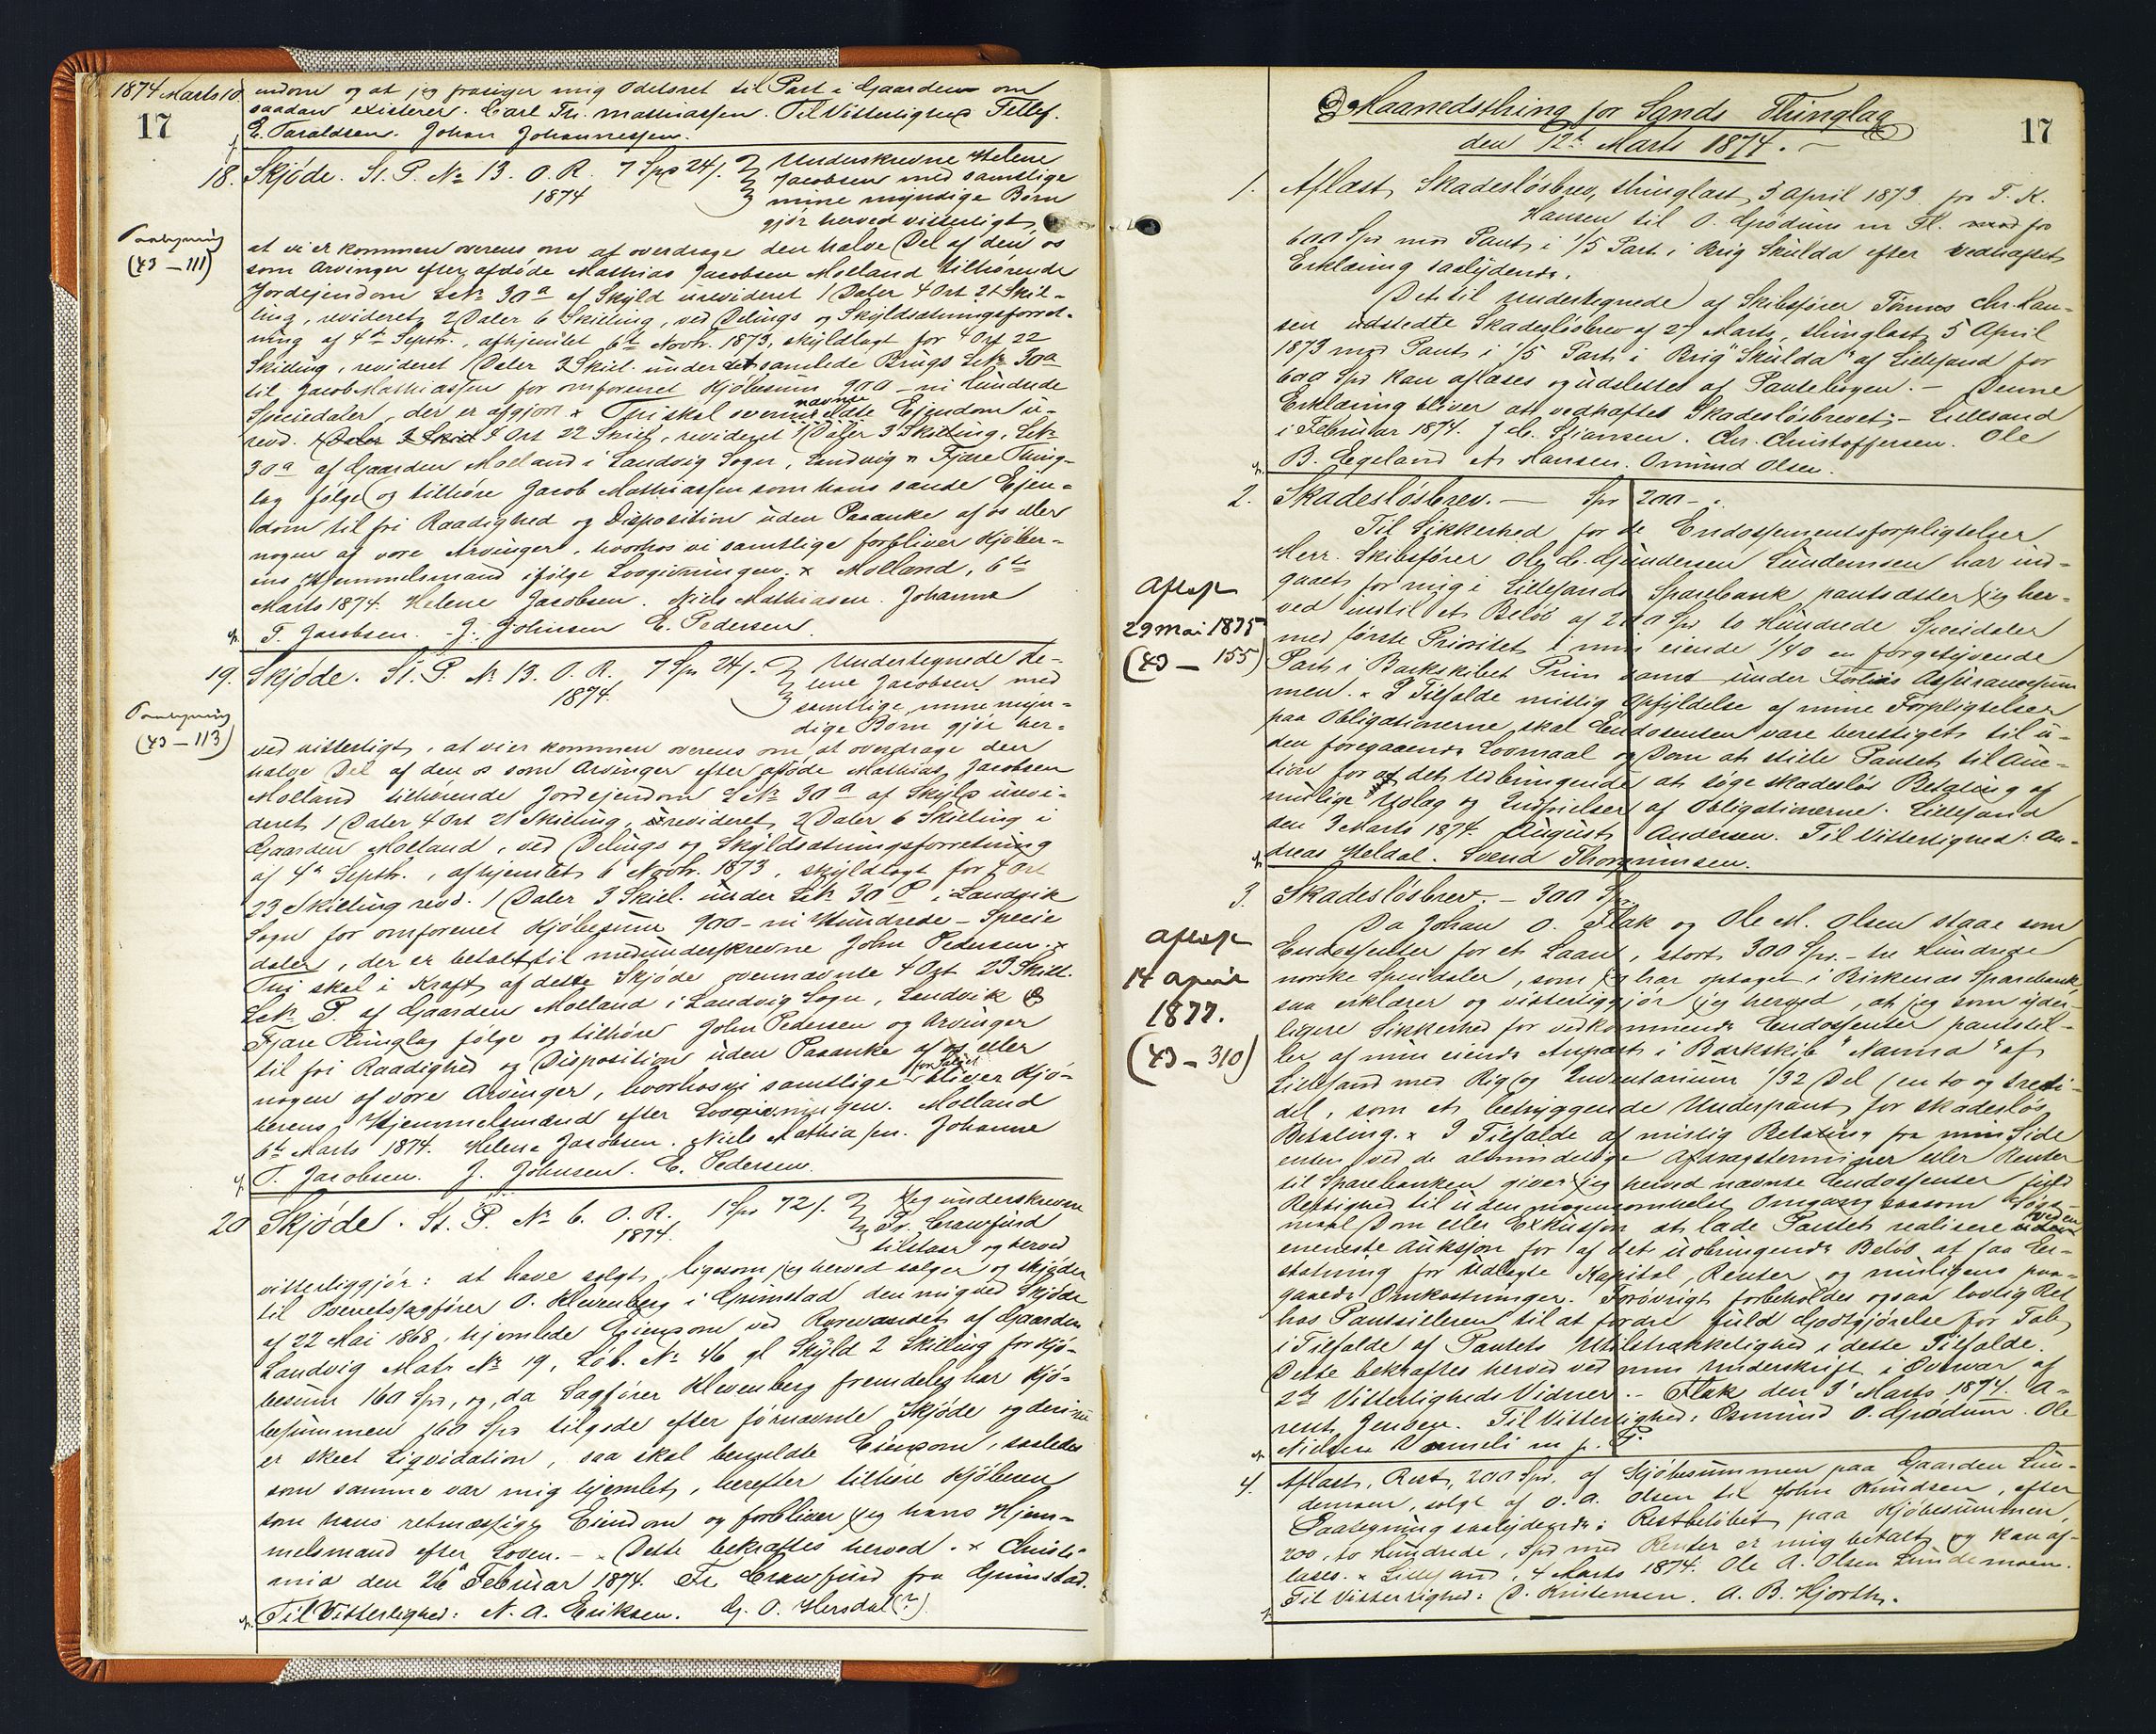 1874 Marts 10.
17
endom og at jeg frasiger mig Odelsret til Part i Gaarden om
saadan existerer. Carl Fr. Mathiassen. Til Vitterlighed Tellef.
E. Taraldsen. Johan Johannessen.
18. Skjøde. St. P. No 13. O. R. 7 Spd 24 ſ. Underskrevne Helene
1874 Jacobsen med samtlige
mine myndige Børn
gjør herved vitterligt,
(43 – 111)
at vi er kommen overens om at overdrage den halve Del af den os
som Arvinger efter afdøde Mathias Jacobsen Molland tilhørende
Jordejendom LNo 30a af Skyld urevideret 1 Daler 4 Ort 21 Skil-
ling, revideret 2 Daler 6 Skilling, ved Delings og Skyldsætningsforret-
ning af 4de Septbr., afhjemlet 6te Novbr. 1873, skyldlagt for 4 Ort 22
Skilling, revideret 1 Daler 3 Skil. under det samlede Brugs LNo 30a
til Jacob Mathiassen for omforenet Kjøbesum 900 – ni Hundrede
Speciedaler, der er afgjort. × Thi skal ovennævnte Ejendom u-
revd. 4 Ort 22 Skill, revideret 1 Daler 3 Skilling, LNo
30a af Gaarden Molland i Landvig Sogn, Landvig og Fjære Thing-
lag følge og tilhøre Jacob Mathiassen som hans sande Ejen-
dom til fri Raadighed og Disposition uden Paaanke af os eller
nogen af vore Arvinger, hvorhos vi samtlige forbliver Kjøber-
ens Hjemmelsmænd ifølge Lovgivningen. × Molland, 6te
Marts 1874. Helene Jacobsen. Niels Mathiasen. Johanne
T. Jacobsen. J. Johnsen E. Pedersen.
19. Skjøde. St. P. No 13. O. R. 7 Spd 24 ſ. Undertegnede He-
1874. lene Jacobsen med
samtlige mine myn-
dige Børn gjør her-
(43 – 113)
ved vitterligt, at vi er kommen overens om at overdrage den
halve Del af den os som Arvinger efter afdøde Mathias Jacobsen
Molland tilhørende Jordejendom LNo 30a af Skyld urevi-
deret 1 Daler 4 Ort 21 Skilling, revideret 2 Daler 6 Skilling i
Gaarden Molland, ved Delings og Skyldsætningsforretning
af 4de Septbr., afhjemlet 6 Novbr. 1873, skyldlagt for 4 Ort
23 Skilling revd. 1 Daler 3 Skil. under LNo 30 P i Landvik
Sogn for omforenet Kjøbesum 900 – ni Hundrede – Specie
daler, der er betalt til medunderskrevne John Pedersen. ×
Thi skal i Kraft af dette Skjøde ovennævnte 4 Ort 23 Skill.
LNo P. af Gaarden Molland i Landvig Sogn, Landvik &
Fjære Thinglag følge og tilhøre John Pedersen og Arvinger
til fri Raadighed og Disposition uden Paaanke af os eller
nogen af vore Arvinger, hvorhos vi samtlige bliver Kjø-
berens Hjemmelsmænd efter Lovgivningen. Molland
6te Marts 1874. Helene Jacobsen. Niels Mathiassen. Johanne
T. Jacobsen. J. Johnsen. E. Pedersen.
20 Skjøde. St. P. No 6. O. R. 1 Spd 72 ſ. Jeg underskrevne
1874. Fr. Crawfurd
tilstaar og herved
vitterliggjør: at have solgt, ligesom jeg herved sælger og skjøder
til Overretssagfører O. Klevenberg i Grimstad den mig ved Skjøde
af 22 Mai 1868, hjemlede Eiendom ved Rorevandet af Gaarden
Landvig Matr. No 19, Løb. No 46 gl Skyld 2 Skilling for Kjø-
besum 160 Spd, og, da Sagfører Klevenberg fremdeles har Kjø-
besummen 160 Spd tilgode efter førnævnte Skjøde og deri nu
er skeet Liqvidation, saa skal bemeldte Eiendom, saaledes
som samme var mig hjemlet, herefter tilhøre Kjøberen
som hans retmæssige Eiendom og forbliver jeg hans Hjem-
melsmand efter Loven. – × Dette bekræftes herved. × Christi-
ania den 26 Februar 1874. Fr. Crawfurd fra Grimstad.
Til Vitterlighed: N. A. Eriksen. G. O. Hersdal (?)
Maanedsthing for Sands Thinglag
den 12te Marts 1874. –
17
1. Aflæst Skadesløsbrev, thinglæst 5 April 1873 fra T. K.
Hansen til O. Grødum m Fl. for
600 Spd med Pant i 1/5 Part i Brig Skulda efter vedhæftet
Erklæring saalydende.
Det til undertegnede af Skibsfører Tønnes Chr. Han-
sen udstedte Skadesløsbrev af 27 Marts, thinglæst 5 April
1873 med Pant i 1/5 Part i Brig "Skulda" af Lillesand for
600 Spd kan aflæses og udslettes af Pantebogen. – Denne
Erklæring bliver at vedhæftes Skadesløsbrevet; – Lillesand
i Februar 1874. J. C. Stiansen. Chr. Christoffersen. Ole
B. Egeland A. Hansen. Omund Olsen.
2. Skadesløsbrev. – Spd 200 –.
Til Sikkerhed for de Endossementsforpligtelser
Herr. Skibsfører Ole C. Gundersen Lundemoen har ind-
gaaet for mig i Lillesands Sparebank pantsætter jeg her-
Aflæst
29 Mai 1875
(43 – 155)
ved indtil et Beløb af 200 Spd to Hundrede Speciedaler
med første Prioritet i min eiende 1/40 en førgetyvende
Part i Barkskibet Prim samt under Forliis Assurancesum
men. × I Tilfælde mislig Opfyldelse af mine Forpligtelser
paa Obligationerne skal Endosenten være berettiget til u-
den foregaaende Lovmaal og Dom at stille Pantet til Auc-
tion for af det Udbringende at søge skadesløs Betaling af
mulige Udlæg og Indfrielser af Obligationerne. Lillesand
den 3 Marts 1874. August Andersen. Til Vitterlighed: An-
dreas Heldal. Svend Thommesen.
3. Skadesløsbrev. – 300 Spd
Da Johan O. Flak og Ole M. Olsen staae som
Aflæst
14 April
1877.
(43 – 310)
Endossenter for et Laan, stort 300 Spd. – tre Hundrede
norske Speciedaler, som jeg har optaget i Birkenæs Sparebank
saa erklærer og vitterliggjør jeg herved, at jeg som yder-
ligere Sikkerhed for vedkommende Endossenter pantstil-
ler af min eiende Anpart i Barkskib "Nanna" af
Lillesand med Rig og Inventarium 1/32 Del (en to og tredi-
del, som et betryggende Underpant for skadesløs
Betaling. × I Tilfælde af mislig Betaling fra min Side
enten ved de almindelige Afdragsterminer eller Renter
til Sparebanken giver jeg herved nævnte Endossenter fuld
Rettighed til uden nogensomhelst Omgang saasom Søgs-
maal Dom eller Exkusjon at lade Pantet realisere ved en
eneneste Auksjon for af det udbringende Beløb at faa Er-
statning for Udlagte Kapital, Renter og muligens paa-
gaaede Omkostninger. Forøvrigt forbeholdes ogsaa lovlig Ret
hos Pantstilleren til at fordre fuld Godtgjørelse for Tab
i Tilfælde af Pantets Utilstrækkelighed i dette Tilfælde.
Dette bekræftes herved ved min Underskrift i Overvær af
2de Vitterligheds Vidner. – Flak den 3' Marts 1874. A-
rent Jensen. Til Vitterlighed: Osmund O. Grødum. Ole
Nielsen m. p. P.
4. Aflæst, Rest, 200 Spd, af Kjøbesummen paa Gaarden Lun-
demoen, solgt af O. A. Olsen til John Knudsen, efter
Paategning saalydende: Restbeløbet paa Kjøbesummen,
200, to Hundrede, Spd med Renter er mig betalt og kan af-
læses. × Lillesand, 4 Marts 1874. Ole A. Olsen Lundemoen.
Til Vitterlighed: D. Knistensen. A. B. Hjorth.